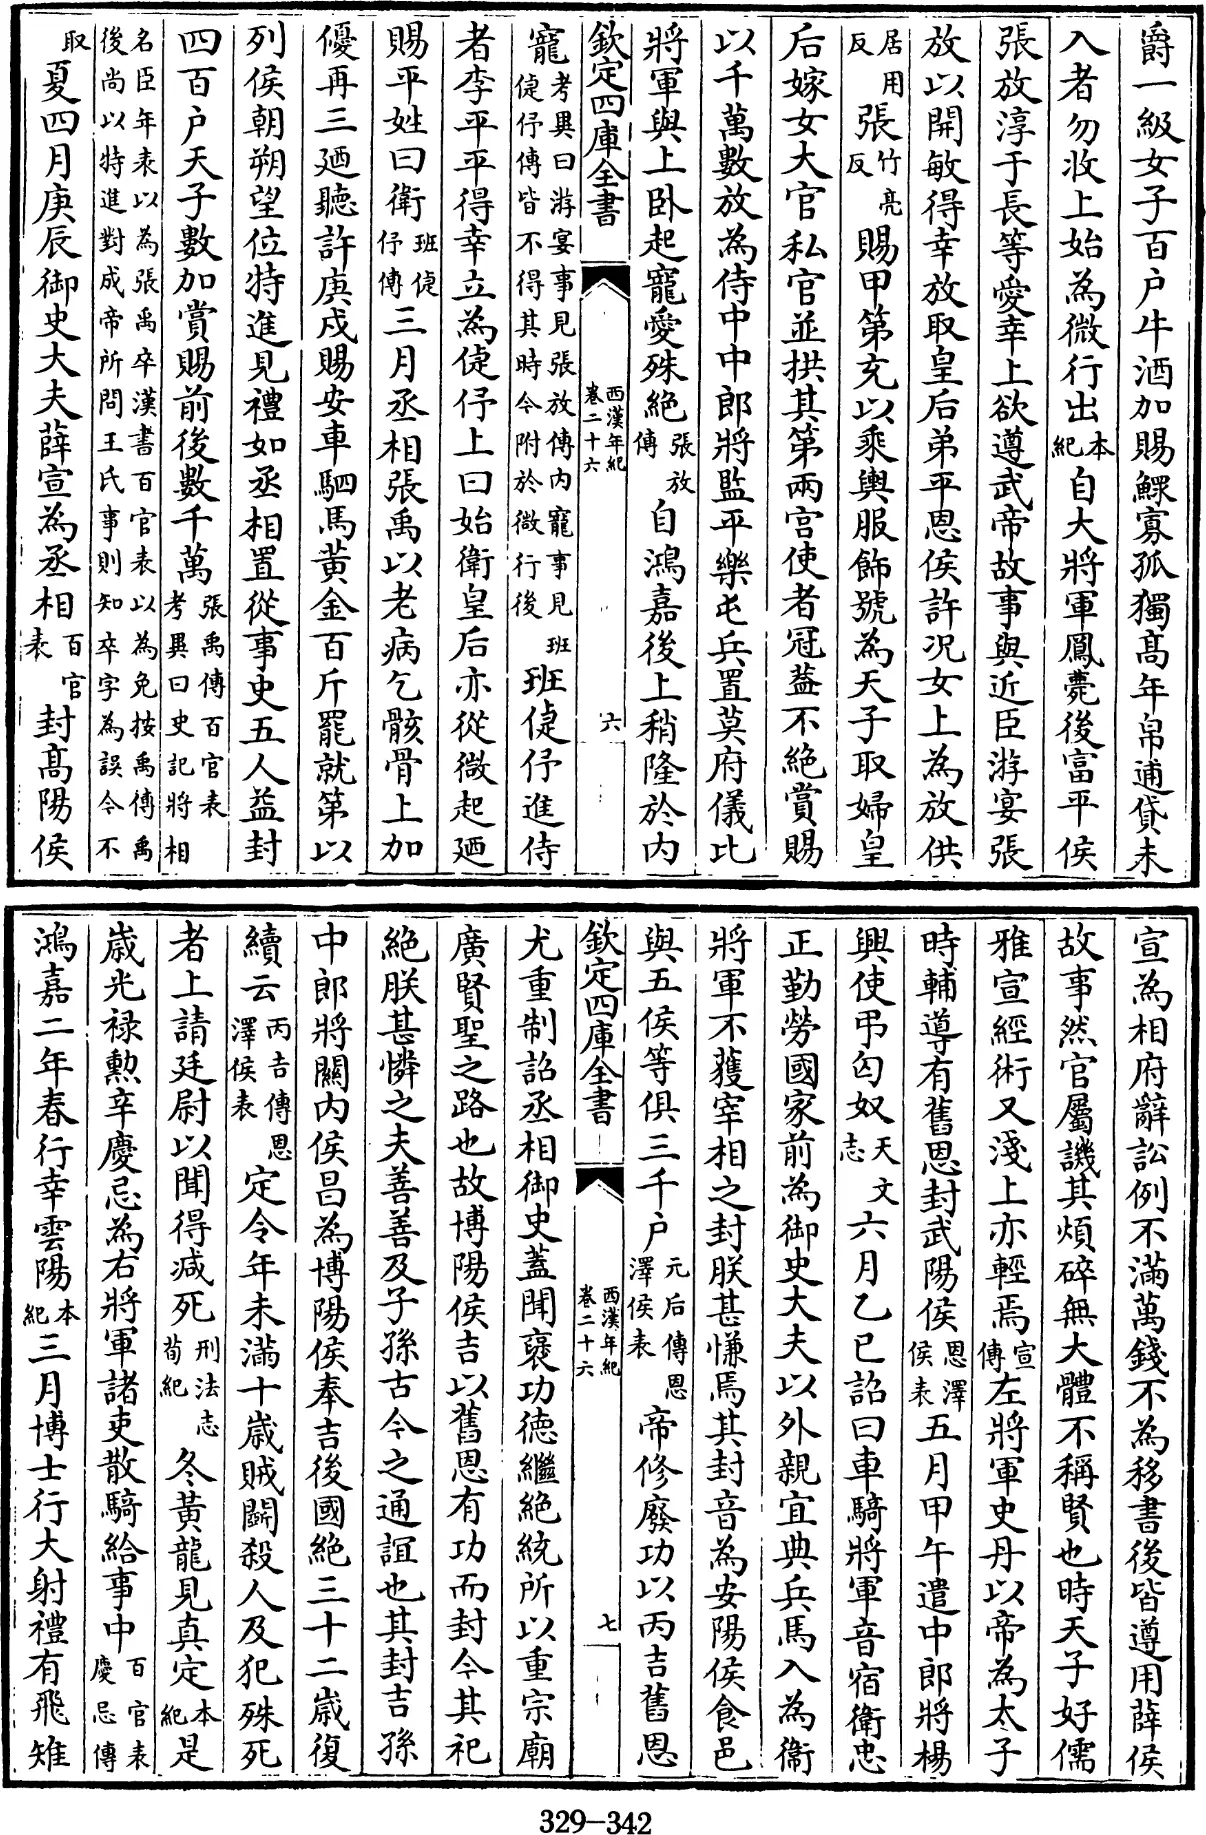 爵一級女子百户牛酒加賜鰥寡孤獨髙年帛逋貸未
入者勿收上始為微行出本紀自大將軍鳳薨後富平侯
張放淳于長等愛幸上欲遵武帝故事與近臣游宴張
放以開敏得幸放取皇后弟平恩侯許况女上為放供
居用反張竹亮反賜甲第充以乘輿服飾號為天子取婦皇
后嫁女大官私官並拱其第兩宮使者冠葢不絶賞賜
以千萬數放為侍中中郎將監平樂屯兵置莫府儀比
將軍與上卧起寵愛殊絶張放傳自鴻嘉後上稍隆於内
欽定四庫全書 西漢年紀卷二十六 六
寵考異曰游宴事見張放傳内寵事見班倢伃傳皆不得其時今附於微行後班倢伃進侍
者李平平得幸立為倢伃上曰始衛皇后亦從微起廼
賜平姓曰衛班倢伃傳三月丞相張禹以老病乞骸骨上加
優再三廼聽許庚戌賜安車駟馬黄金百斤罷就第以
列侯朝朔望位特進見禮如丞相置從事史五人益封
四百户天子數加賞賜前後數千萬張禹傳百官表考異曰史記將相
名臣年表以為張禹卒漢書百官表以為免按禹傳禹後尚以特進對成帝所問王氏事則知卒字為誤今不
取夏四月庚辰御史大夫薛宣為丞相百官表封髙陽侯
宣為相府辭訟例不滿萬錢不為移書後皆遵用薛侯
故事然官屬譏其煩碎無大體不稱賢也時天子好儒
雅宣經術又淺上亦輕焉宣傳左將軍史丹以帝為太子
時輔導有舊恩封武陽侯恩澤侯表五月甲午遣中郎將楊
興使弔匈奴天文志六月乙巳詔曰車騎將軍音宿衛忠
正勤勞國家前為御史大夫以外親宜典兵馬入為衛
將軍不獲宰相之封朕甚慊焉其封音為安陽侯食邑
與五侯等俱三千户元后傳恩澤侯表帝修廢功以丙吉舊恩
欽定四庫全書 西漢年紀卷二十六 七
尤重制詔丞相御史蓋聞襃功德繼絶統所以重宗廟
廣賢聖之路也故博陽侯吉以舊恩有功而封今其祀
絶朕甚憐之夫善善及子孫古今之通誼也其封吉孫
中郎將關内侯昌為博陽侯奉吉後國絶三十二歳復
續云丙吉傳恩澤侯表定令年未滿十歳賊鬭殺人及犯殊死
者上請廷尉以聞得减死刑法志荀紀冬黄龍見真定本紀是
歳光禄勲辛慶忌為右將軍諸吏散騎給事中百官表慶忌傳
鴻嘉二年春行幸雲陽本紀三月博士行大射禮有飛雉
329-342